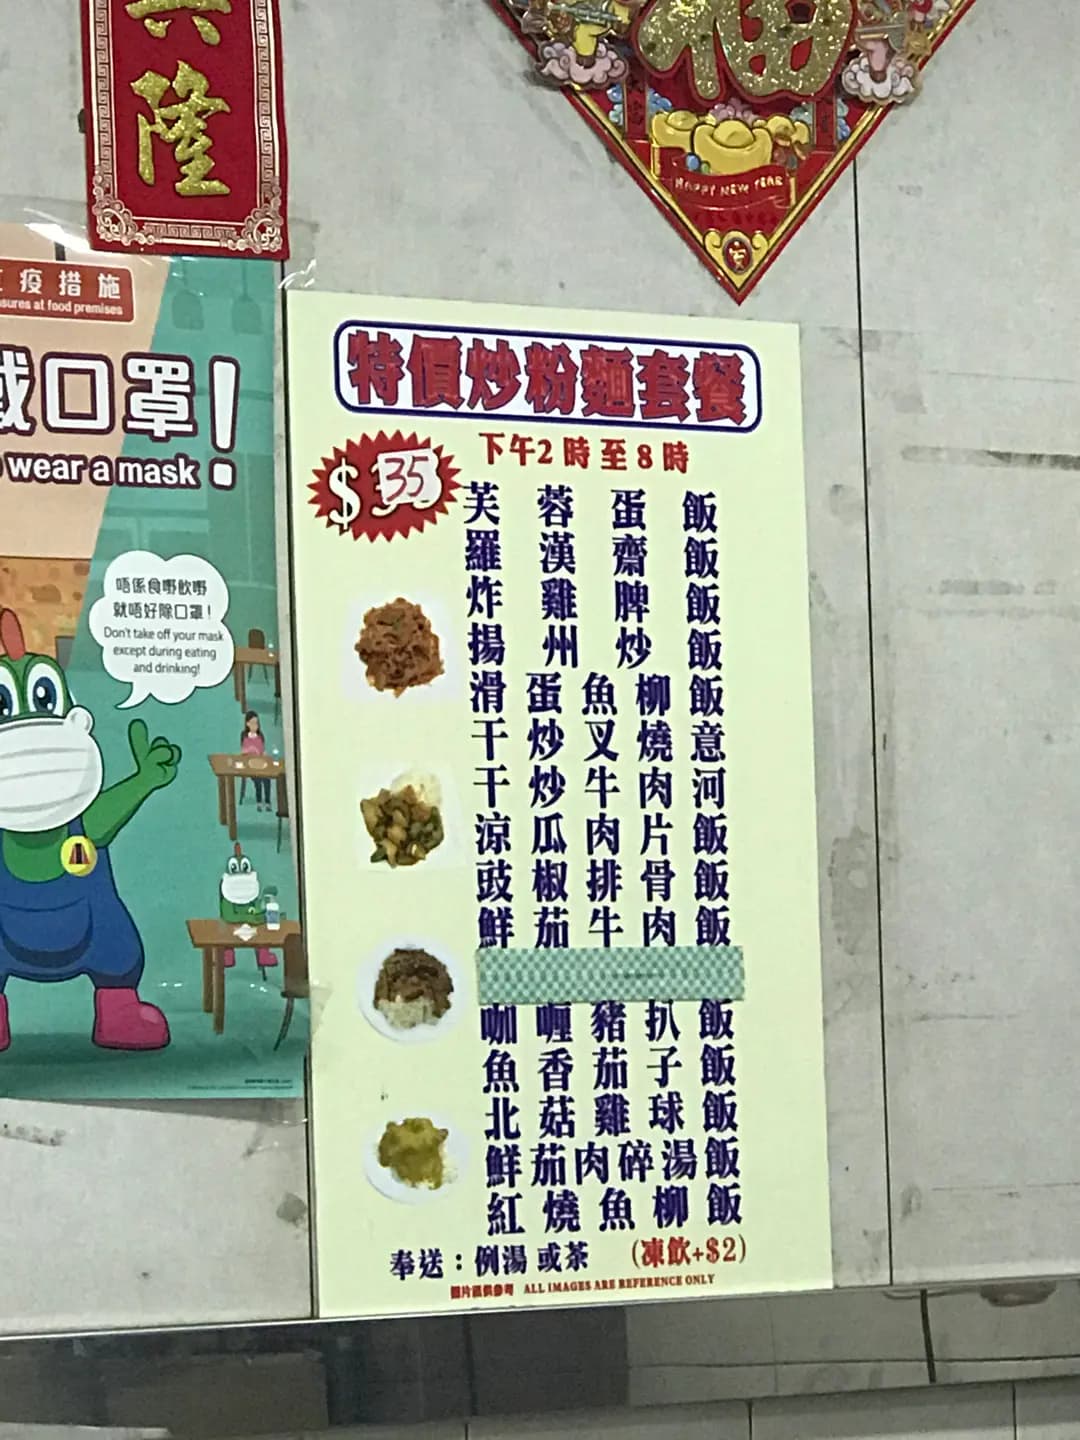 興
隆
福
HAPPY NEW YEAR
疫措施
sures at food premises
戴口罩!
wear a mask
唔係食嘢飲嘢
就唔好除口罩!
Don't take off your mask
except during eating
and drinking!
特價炒粉麵套餐
$35
下午2時至8時
芙蓉蛋飯
羅漢齋飯
炸雞脾飯
揚州炒飯
滑蛋魚柳飯
干炒叉燒意
干炒牛肉河
涼瓜肉片飯
豉椒排骨飯
鮮茄牛肉飯
咖喱豬扒飯
魚香茄子飯
北菇雞球飯
鮮茄肉碎湯飯
紅燒魚柳飯
奉送：例湯或茶 (凍飲+$2)
圖片祇供參考 ALL IMAGES ARE REFERENCE ONLY